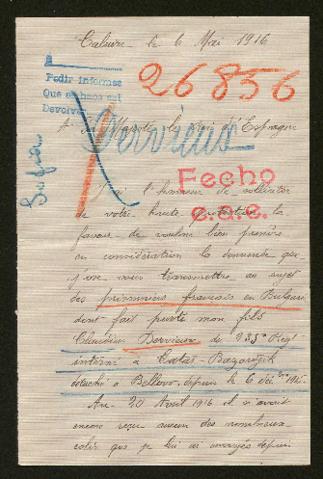 Caluire le 6 Mai 1916
26856
Pedir informes
Que se haga así
Devolver
Sofia
A Sa Majesté le Roi d'Espagne
Dervieux
Fecho
J'ai l'honneur de solliciter
de votre haute protection la
faveur de vouloir bien prendre
en considération la demande que
j'ose vous transmettre au sujet
des prisonniers français en Bulgarie
dont fait partie mon fils
Claudius Dervieux du 235e Regt
interné à Tatar-Bazardgik
détaché à Bellovo, depuis le 6 déc 1915.
Au 20 Avril 1916 il n'avait
encore reçu aucun des nombreux
colis que je lui ai envoyés depuis